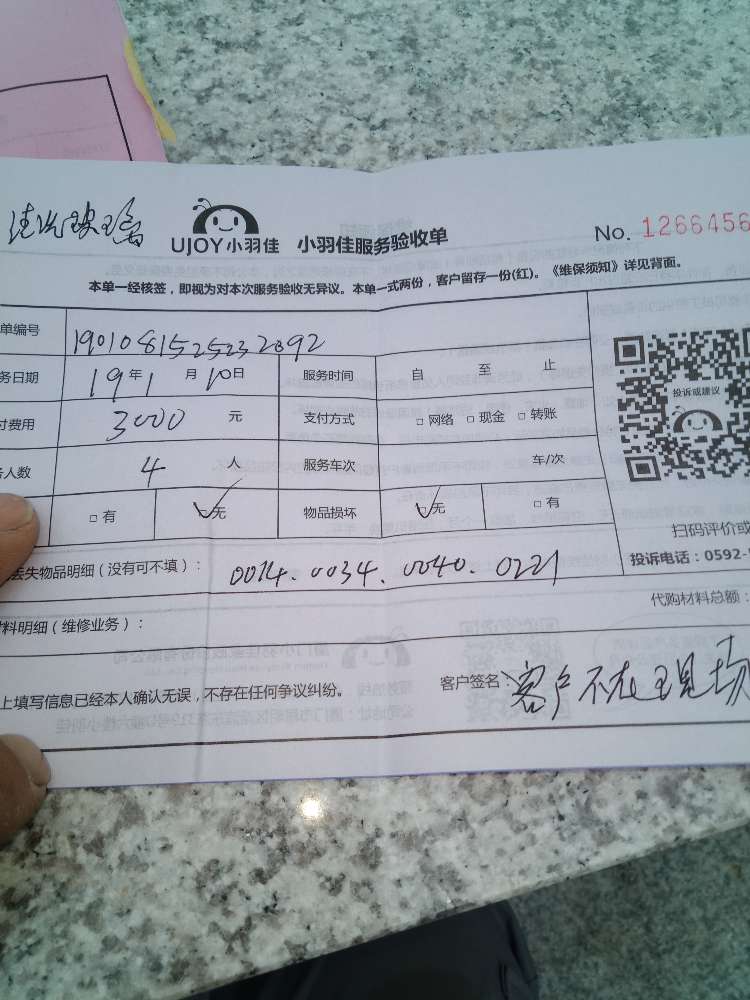 清洗玻璃
UJOY小羽佳 小羽佳服务验收单 No. 1266456
本单一经核签，即视为对本次服务验收无异议。本单一式两份，客户留存一份(红)。《维保须知》详见背面。
单编号 1901081525232092
务日期 19年1月10日 服务时间 自 至 止
付费用 3000 元 支付方式 □网络 □现金 □转账
务人数 4 人 服务车次 车/次
□有 ✓无 物品损坏 ✓无 □有
投诉或建议
扫码评价或
投诉电话：0592-
丢失物品明细（没有可不填）： 0014.0034.0040.0221
代购材料总额：
材料明细（维修业务）：
上填写信息已经本人确认无误，不存在任何争议纠纷。 客户签名：客户不在现场